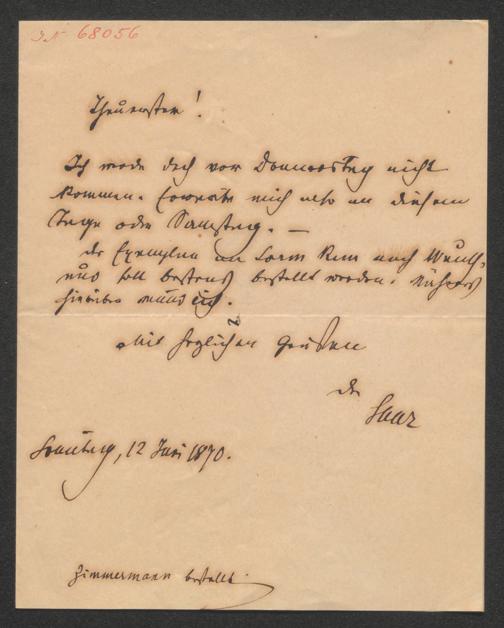 IN 68056
Theuerster!
Ich werde doch vor Donnerstag nicht
kommen. Erwarte mich also an diesem
Tage oder Samstag. —
Exemplar an Lorm kann nach
soll bestens bestellt werden. Näheres
hierüber mündlich.
Mit herzlichen Grüßen
der
Saar
Sonntag, 12 Juni 1870.
Zimmermann bestellt.